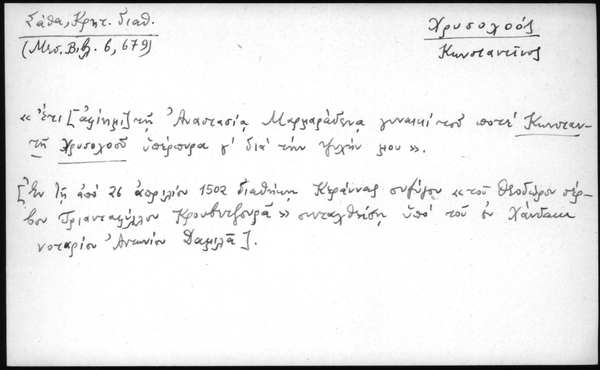 Σάθα, Κρητ. διαθ.
(Μεσ. Βιβλ. 6, 679)
Χρυσολοός
Κωνσταντῖνος
« Ἔτι [ἀφίημι] τῇ Ἀναστασίᾳ Μαρμαράδενᾳ γυναικί τοῦ ποτέ Κωνσταν-
τῆ Χρυσολοοῦ ὑπέρπυρα γ' διά τήν ψυχήν μου ».
[Ἐν τῇ ἀπό 26 ἀπριλίου 1502 διαθήκῃ Κεράννας συζύγου « τοῦ Θεοδώρου σέρ-
βου Τριανταφύλλου » συνταχθείσῃ ὑπό τοῦ ἐν Χάνδακι
νοταρίου Ἀντωνίου Δαμιλᾶ ].